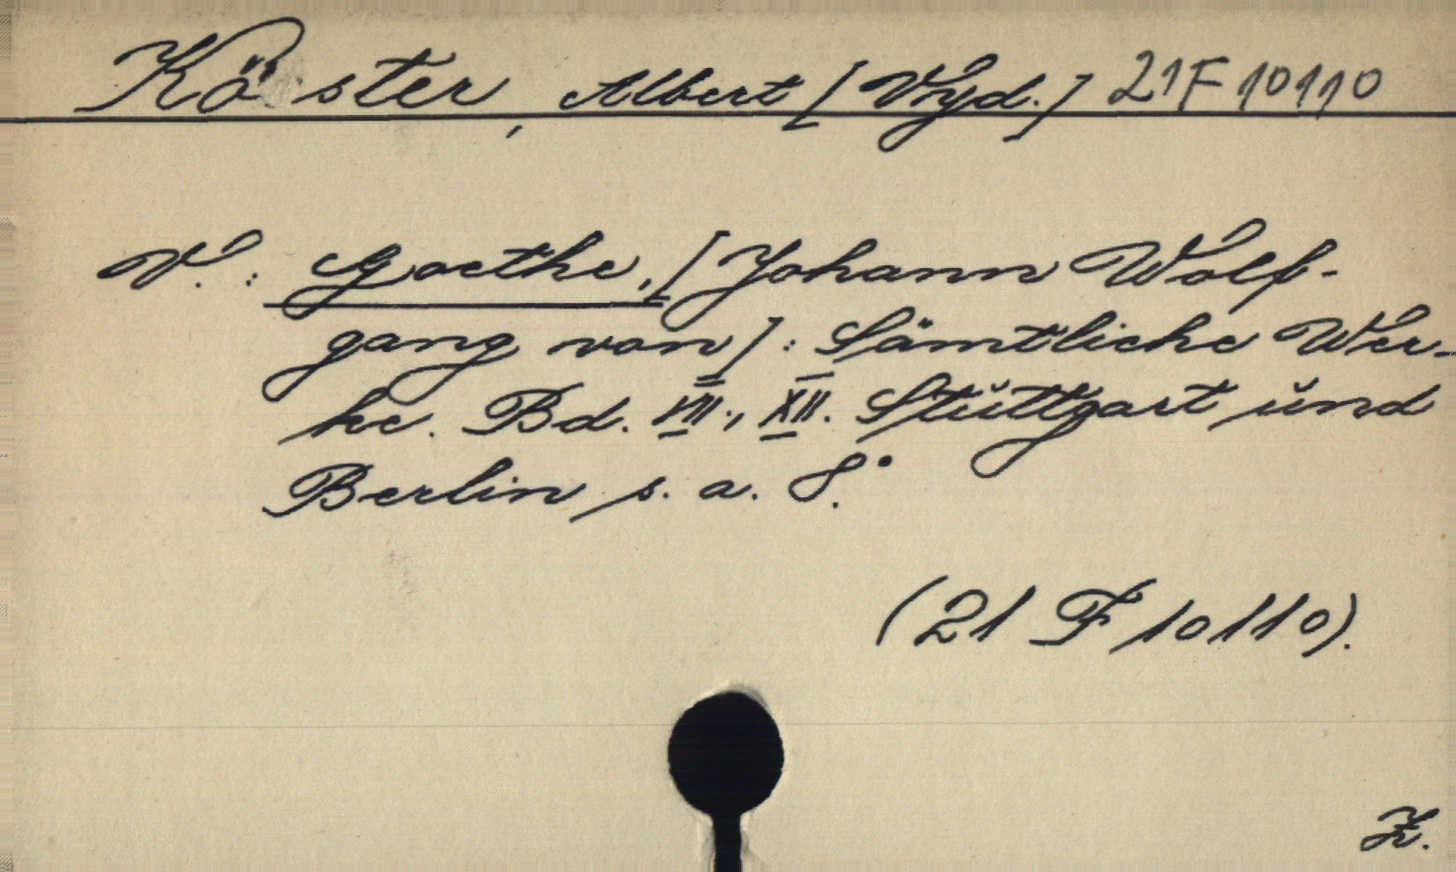 Köster, Albert [Vyd.] 21F10110
V.: Goethe, [Johann Wolf-
gang von]: Sämtliche Wer-
ke. Bd. VII., XII. Stŭttgart ŭnd
Berlin s. a. 8°.
(21 F 10110).